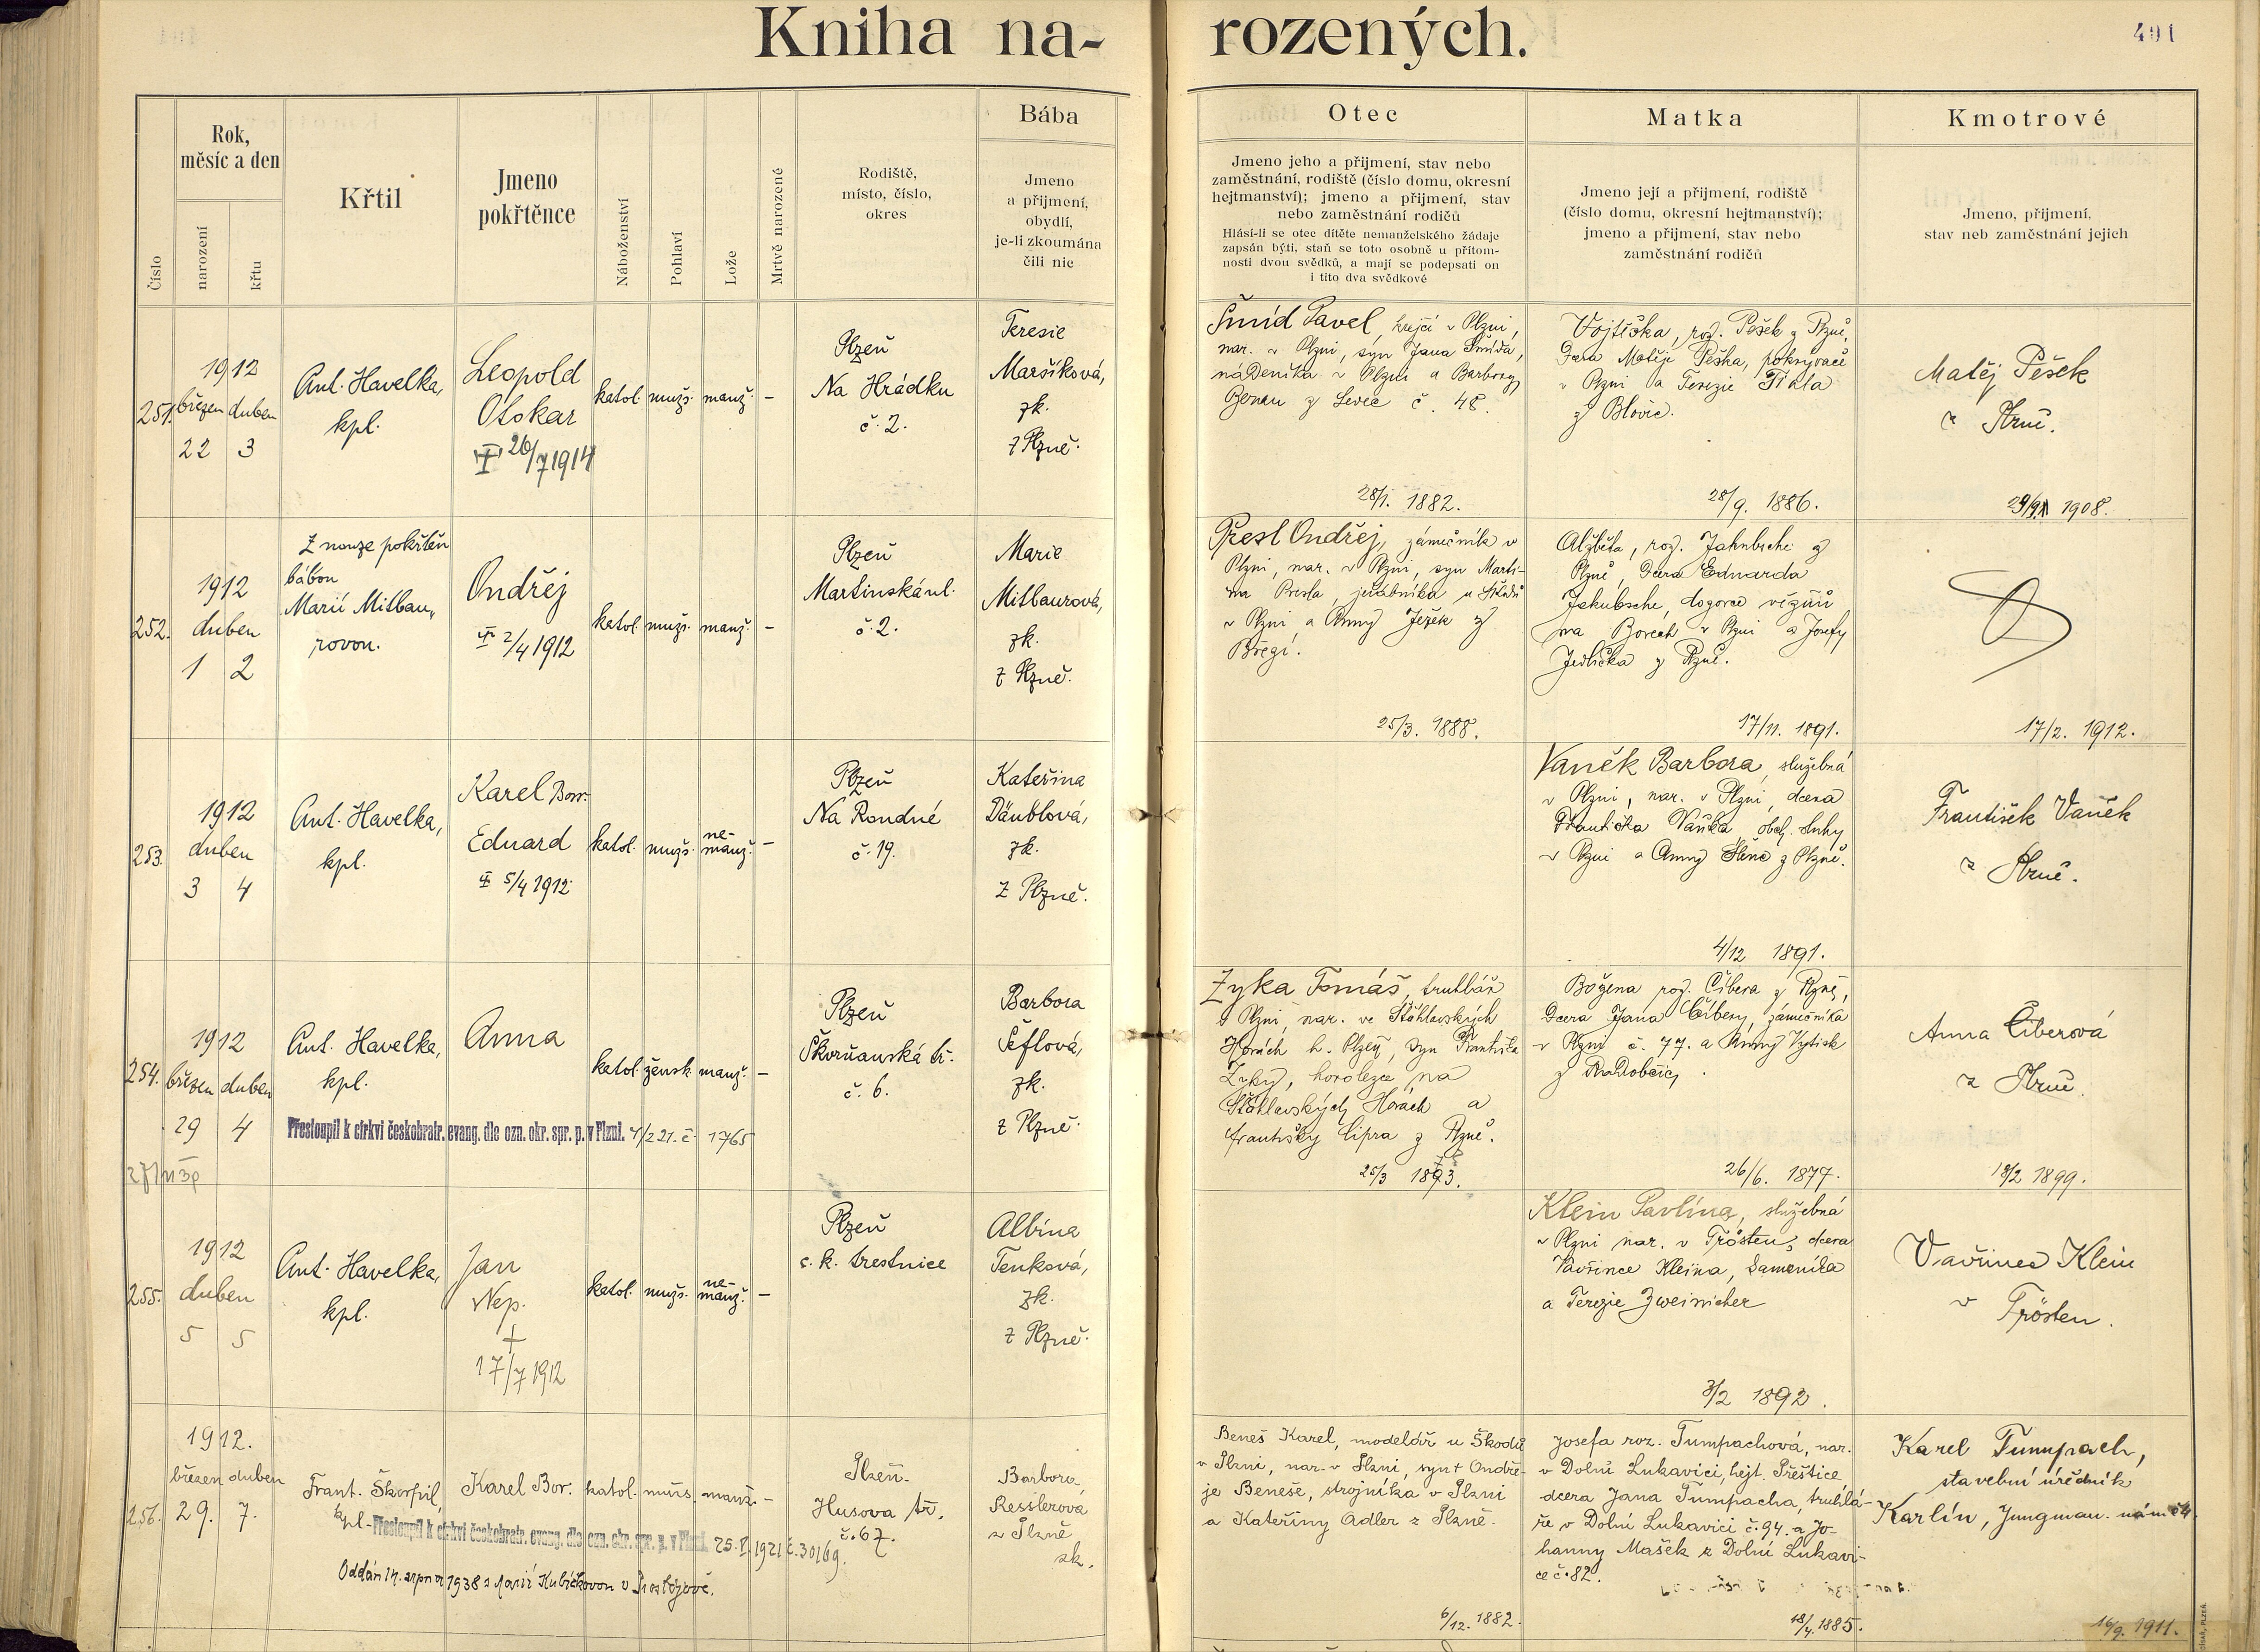 Kniha na-
rozených.
401
Číslo
Rok,
měsíc a den
narození
křtu
Křtil
Jmeno
pokřtěnce
Náboženství
Pohlaví
Lože
Mrtvě narozené
Rodiště,
místo, číslo,
okres
Bába
Jmeno
a přijmení,
obydlí,
je-li zkoumána
čili nic
Otec
Jmeno jeho a přijmení, stav nebo
zaměstnání, rodiště (číslo domu, okresní
hejtmanství); jmeno a přijmení, stav
nebo zaměstnání rodičů
Hlásí-li se otec dítěte nemanželského žádaje
zapsán býti, staň se toto osobně u přítom-
nosti dvou svědků, a mají se podepsati on
i tito dva svědkové
Matka
Jmeno její a přijmení, rodiště
(číslo domu, okresní hejtmanství);
jmeno a přijmení, stav nebo
zaměstnání rodičů
Kmotrové
Jmeno, přijmení,
stav neb zaměstnání jejich
251.
1912
březen duben
22 3
Ant. Havelka,
kpl.
Leopold
Otokar
26/7 1914
katol. mužs. manž. –
Plzeň
Na Hrádku
č. 2.
Teresie
Maršíková,
zk.
z Plzně.
Šmíd Pavel, krejčí v Plzni,
nar. v Plzni, syn Jana Šmída,
nádeníka v Plzni a Barbory
z Levec č. 48.
28/1. 1882.
Vojtěška, roz. Pešek z Plzně,
dcera Matěje Peška, pokrývače
v Plzni a Terezie
z Blovic.
28/9. 1886.
Matěj Pešek
z Plzně.
1908.
252.
1912
duben
1 2
Z nouze pokřtěn
bábou
Marií Mitbau-
rovou.
Ondřej
2/4 1912
katol. mužs. manž. –
Plzeň
Martinská ul.
č. 2.
Marie
Mitbaurová,
zk.
z Plzně.
Přesl Ondřej, zámečník v
Plzni, nar. v Plzni, syn Marti-
na Presla, jeřábníka u Škodů
v Plzni a Anny Ježek z
25/3. 1888.
Alžběta, roz.
Plzně, dcera Eduarda
Jakubsche, dozorce vězňů
na Borech v Plzni a Josefy
Jedlička z Plzně.
17/11. 1891.
17/2. 1912.
253.
1912
duben
3 4
Ant. Havelka,
kpl.
Karel Borr.
Eduard
5/4 1912
katol. mužs. ne-
manž. –
Plzeň
Na Rondné
č. 19.
Kateřina
Däublová,
zk.
z Plzně.
Vaněk Barbora, služebná
v Plzni, nar. v Plzni, dcera
Františka Vaňka, obch. sluhy
v Plzni a Anny z Plzně.
4/12 1891.
František Vaněk
z Plzně.
254.
1912
březen duben
29 4
Ant. Havelka,
kpl.
Anna
katol. žensk. manž. –
Přestoupil k církvi českobratr. evang. dle ozn. okr. spr. p. v Plzni. 4/2 21. č. 1765
Plzeň
Škvrňanská tř.
č. 6.
Barbora
Šeflová,
zk.
z Plzně.
Zyka Tomáš, truhlář
v Plzni, nar. ve Štáhlavských
Horách h. Plzeň, syn Františka
Zyky, horolezce na
Štáhlavských Horách a
Františky Cipra z Plzně.
25/3
Božena roz. Čibera z Plzně,
dcera Jana Čibery, zámečníka
v Plzni č. 77. a Anny Vytisk
z
26/6. 1877.
Anna Čiberová
z Plzně.
18/2 1899.
255.
1912
duben
5 5
Ant. Havelka,
kpl.
Jan
Nep.
+
17/7 1912
katol. mužs. ne-
manž. –
Plzeň
c. k. trestnice
Albína
Tenková,
zk.
z Plzně.
Klein Pavlína, služebná
v Plzni nar. v Trösten, dcera
Vavřince Kleina, kameníka
a Terezie
3/2 1892.
Vavřinec Klein
v Trösten.
256.
1912.
březen duben
29. 7.
Frant. Škorpil,
kpl.
Karel Bor.
katol. mužs. manž. –
Přestoupil k církvi českobratr. evang. dle ozn. okr. spr. p. v Plzni. 25.V.1921 č. 30169.
Oddán 14. srpna 1938 s Marií Kubíčkovou v Prostějově.
Plzeň.
Husova tř.
č. 67.
Barbora
Resslerová
z Plzně
zk.
Beneš Karel, modelář u Škodů
v Plzni, nar. v Plzni, syn † Ondře-
je Beneše, strojníka v Plzni
a Kateřiny Adler z Plzně.
6/12. 1882.
Josefa roz. Tumpachová, nar.
v Dolní Lukavici, hejt. Přeštice
dcera Jana Tumpacha, truhlá-
ře v Dolní Lukavici č. 94. a Jo-
hanny Mašek z Dolní Lukavi-
ce č. 82.
18/4. 1885.
Karel Tumpach,
stavební úředník
Karlín, Jungman. nám. č. 4.
16/9. 1911.